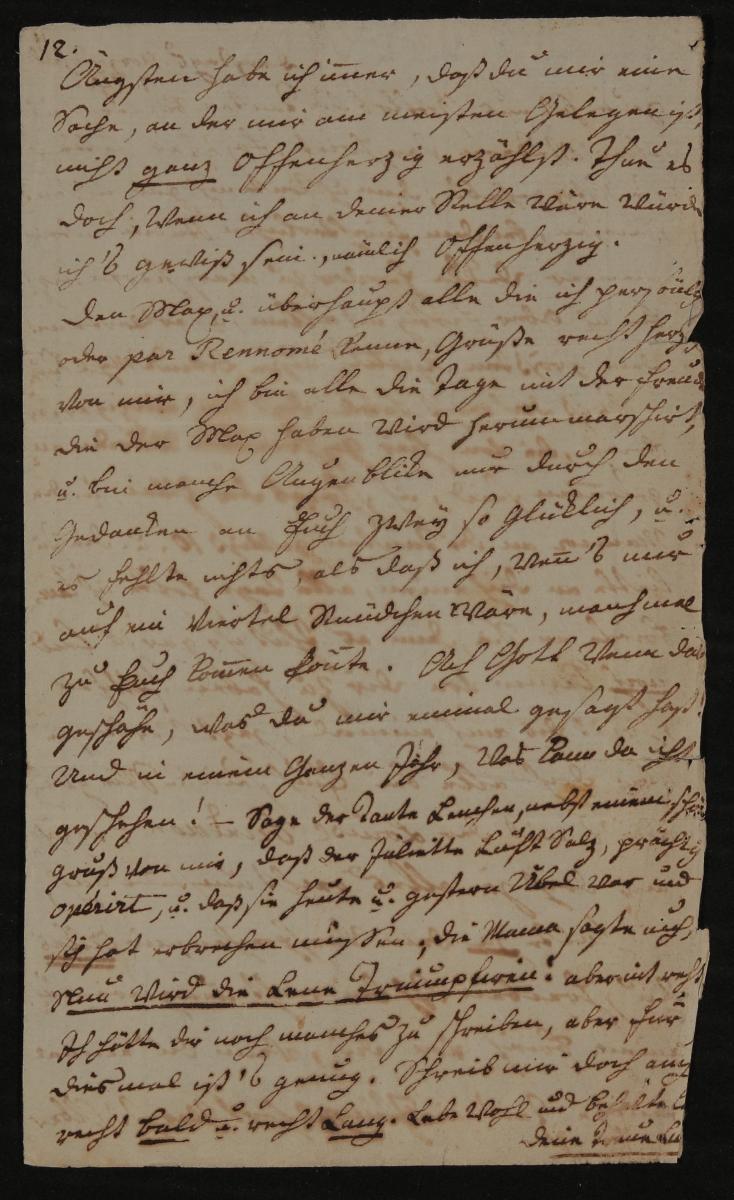 12.
Ängsten habe ich immer, daß du mir eine
Sache, an der mir am meisten Gelegen ist,
nicht ganz Offenherzig erzählst. Thue es
doch, Wenn ich an deiner Stelle Wäre Würde
ich's gewiß sein, nämlich Offenherzig.
Den Max, u. überhaupt alle die ich persönlich
oder par Rennomé kenne, Grüße recht herz
von mir, ich bin alle die Tage mit der Freude
die der Max haben Wird herummarschirt,
u. bin manche Augenblike nur durch den
Gedanken an Euch zwey so Glüklich, u.
es fehlte nichts, als daß ich, Wenn's nur
auf ein Viertel Stündchen Wäre, manchmal
zu Euch kommen könnte. Ach Gott Wenn das
geschähe, was du mir einmal gesagt hast!
Und in einem Ganzen Jahr, Was kann da nicht
geschehen! – Sage der Tante Lenchen, nebst einem schön
gruß von mir, daß der Juliette Salz, prächtig
operirt, u. daß sie heute u. gestern Übel War und
sich hat erbrechen müssen, die Mama sagte auch,
Nun Wird die Lene Triumpfiren! aber mit recht
Ich hätte dir noch manches zu schreiben, aber Für
diesmal ist's genug. Schreib mir doch auch
recht bald u. recht Lang. Lebe Wohl und
Deine Treue